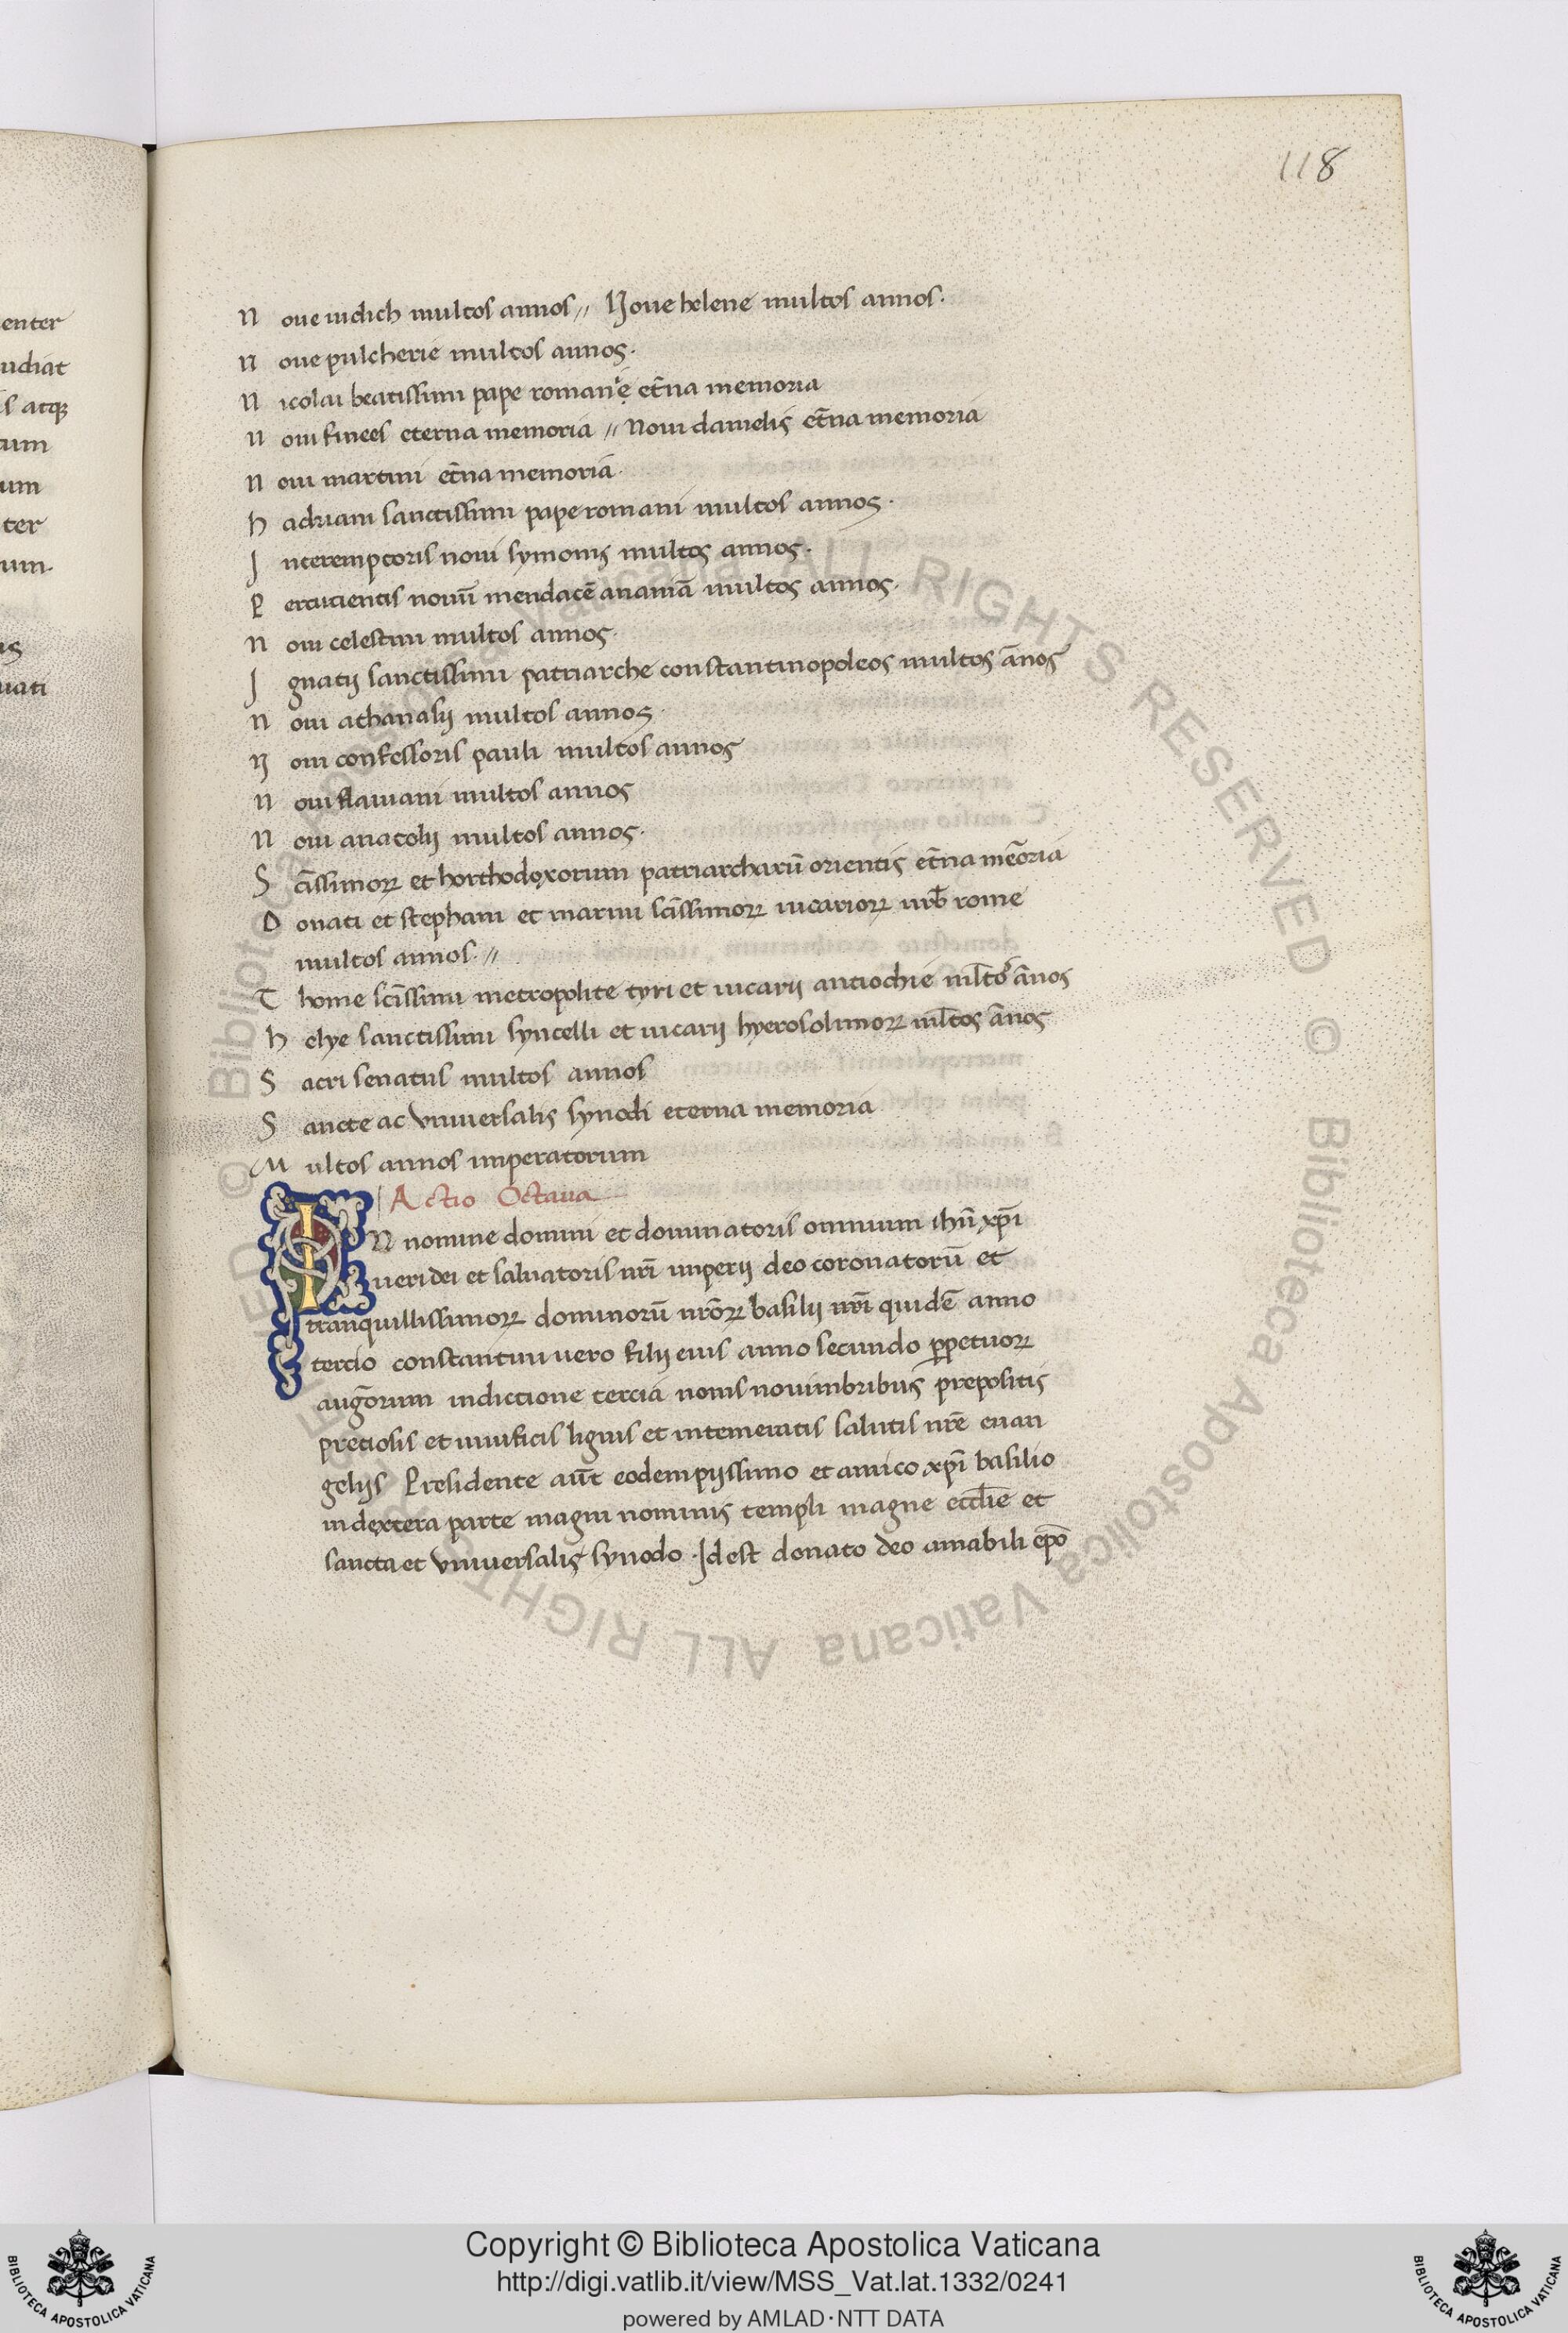 118
enter
udiat
s atqꝫ
tum
um
ter
um.
us
uati
Noue iudich multos annos // Noue helene multos annos.
Noue pulcherie multos annos.
Nicolai beatissimi pape romanę et̄na memoria
Noui finees eterna memoria // Noui danielis et̄na memoria
Noui martini et̄na memoria.
Hadriani sanctissimi pape romani multos annos.
Interemptoris noui symonis multos annos.
Percutientis nouū mendacē ananiā multos annos.
Noui celestini multos annos.
Ignatij sanctissimi patriarche constantinopoleos multos ānos
Noui athanasij multos annos.
Noui confessoris pauli multos annos
Noui flauiani multos annos
Noui anatolij multos annos.
Sc̄issimoꝝ et horthodoxorum patriarcharū orientis et̄na mēoria
Donati et stephani et marini sc̄issimoꝝ uicarioꝝ urb̄ rome
multos annos. //
Thome sc̄issimi metropolite tyri et uicarij antiochie ml̄tos ānos
Helye sanctissimi syncelli et uicarij hyerosolimoꝝ ml̄tos ānos
Sacri senatus multos annos
Sancte ac vniuersalis synodi eterna memoria
Multos annos imperatorum
Actio Octaua
IN nomine domini et dominatoris omnium ihū xp̄i
ueri dei et saluatoris nr̄i imperij deo coronatorū et
tranquillissimoꝝ dominorū nr̄oꝝ basilij nr̄i quidē anno
tercio constantini uero filij eius anno secundo ꝑpetuoꝝ
auḡorum indictione tercia nonis nouimbribus prepositis
preciosis et uiuificis lignis et intemeratis salutis nr̄e euan
gelijs Presidente aūt eodem pijssimo et amico xp̄i basilio
in dextera parte magni nominis templi magne eccl̄ie et
sancta et vniuersalis synodo. Id est donato deo amabili ep̄o
© Biblioteca Apostolica Vaticana ALL RIGHTS RESERVED © Biblioteca Apostolica Vaticana ALL RIGHTS RESERVED
Copyright © Biblioteca Apostolica Vaticana
http://digi.vatlib.it/view/MSS_Vat.lat.1332/0241
powered by AMLAD·NTT DATA
BIBLIOTECA APOSTOLICA VATICANA
BIBLIOTECA APOSTOLICA VATICANA